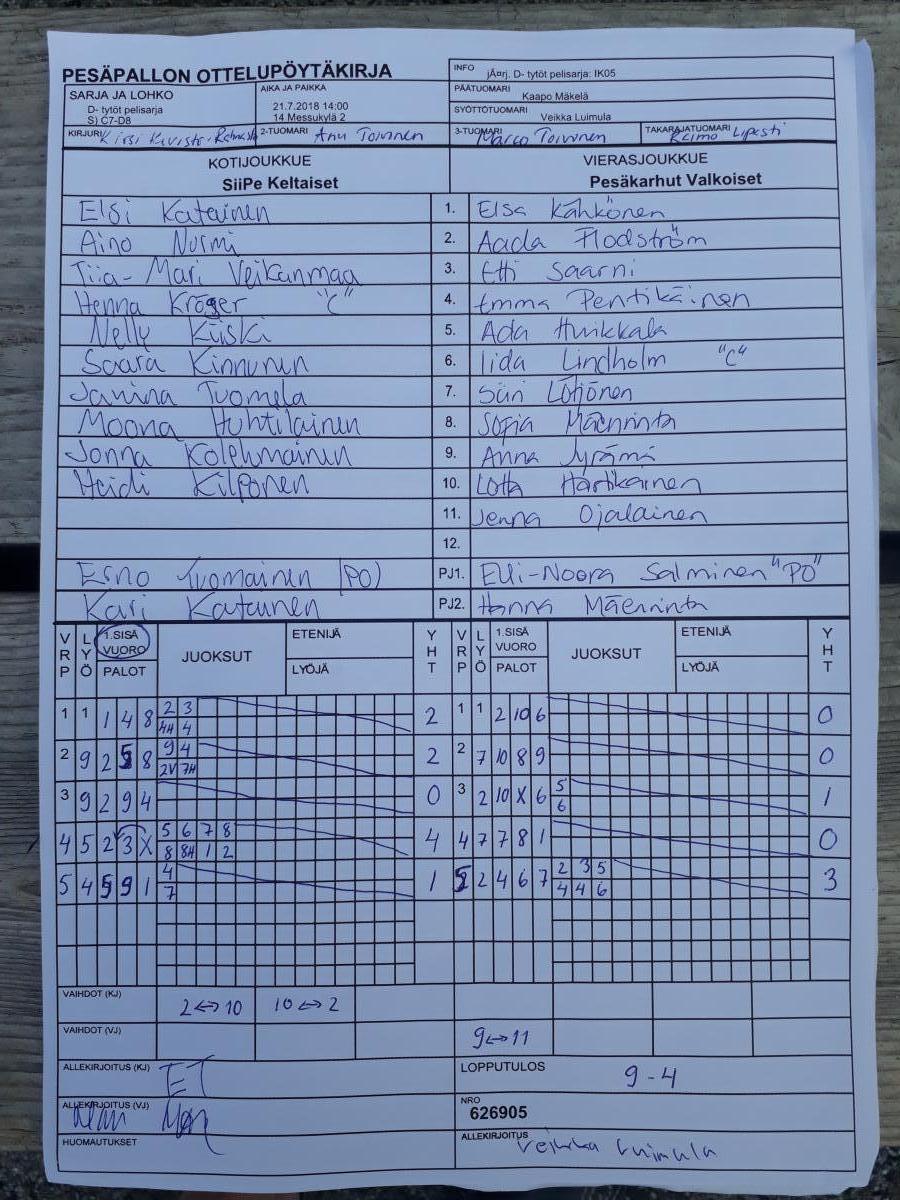 PESÄPALLON OTTELUPÖYTÄKIRJA
INFO jÃ¤rj. D- tytöt pelisarja: IK05
SARJA JA LOHKO
D- tytöt pelisarja
S) C7-D8
AIKA JA PAIKKA
21.7.2018 14:00
14 Messukylä 2
PÄÄTUOMARI
Kaapo Mäkelä
SYÖTTÖTUOMARI
Veikka Luimula
KIRJURI Kirsi
2-TUOMARI Anu Toivonen
3-TUOMARI Marco Toivonen
TAKARAJATUOMARI Reimo
KOTIJOUKKUE
SiiPe Keltaiset
VIERASJOUKKUE
Pesäkarhut Valkoiset
Elsi Katainen 1. Elsa Kähkönen
Aino Nurmi 2. Aada Flodström
Tiia-Mari Veikanmaa 3. Etti Saarni
Henna Kröger "C" 4. Emma Pentikäinen
Nelly Kiiski 5. Ada Huikkala
Saara Kinnunen 6. Iida Lindholm "C"
Janina Tuomela 7. Siiri Lötjönen
Moona Huhtilainen 8. Sofia Mäenrinta
Jonna Kolehmainen 9. Anna Jyrämä
Heidi Kilponen 10. Lotta Hartikainen
11. Jenna Ojalainen
12.
Esno Tuomainen (PO) PJ1. Elli-Noora Salminen "PO"
Kari Katainen PJ2. Hanna Mäenrinta
VRP LYÖ 1.SISÄ VUORO PALOT JUOKSUT ETENIJÄ LYÖJÄ YHT VRP LYÖ 1.SISÄ VUORO PALOT JUOKSUT ETENIJÄ LYÖJÄ YHT
1 1 1 4 8 2 3 2 1 1 2 10 6 0
4H 4
2 9 2 5 8 9 4 2 2 7 10 8 9 0
2V 7H
3 9 2 9 4 0 3 2 10 X 6 5 1
6
4 5 2 3 X 5 6 7 8 4 4 7 7 8 1 0
8 8H 1 2
5 4 5 9 1 4 1 5 2 4 6 7 2 3 5 3
7 4 4 6
VAIHDOT (KJ) 2↔10 10↔2
VAIHDOT (VJ) 9↔11
ALLEKIRJOITUS (KJ) ET
LOPPUTULOS 9-4
ALLEKIRJOITUS (VJ)
NRO
626905
HUOMAUTUKSET
ALLEKIRJOITUS Veikka Luimula